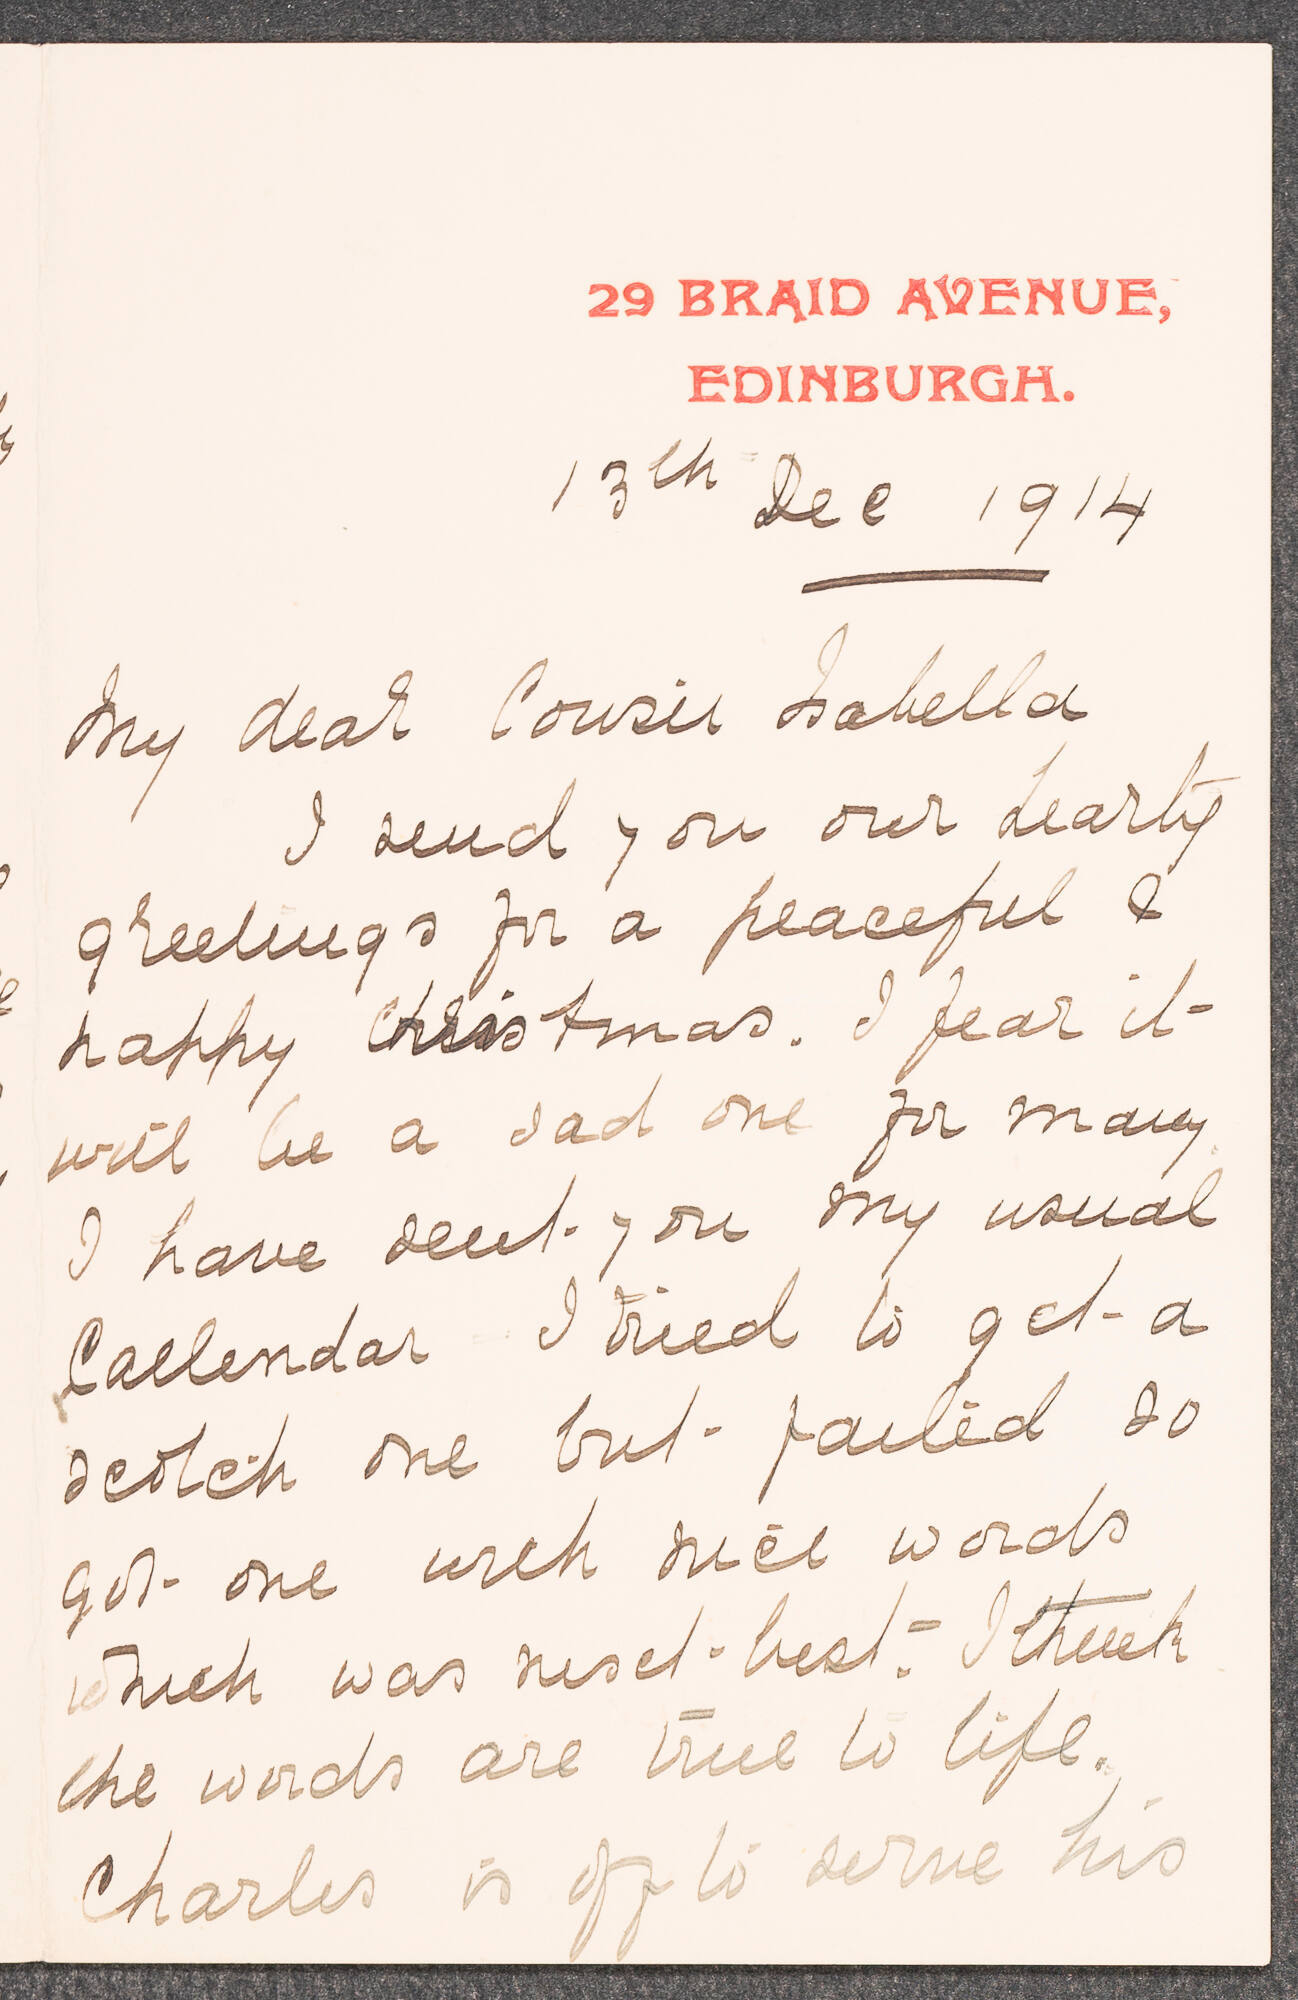 29 BRAID AVENUE,
EDINBURGH.
13th Dec 1914
My dear Cousin Isabella
I send you our hearty
greetings for a peaceful &
happy Christmas. I fear it
will be a sad one for many.
I have sent you my usual
Callendar - I tried to get a
scotch one but failed so
got one with nice words
which was next best. - I think
the words are true to life.
Charles is off to serve his